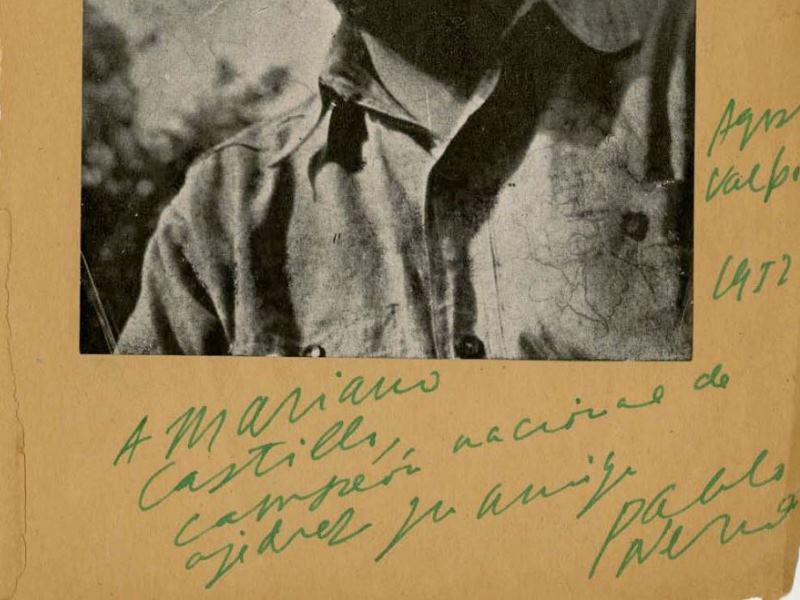 Agos
Valp
1952
A Mariano
Castillo,
campeón nacional de
ajedrez su amigo
Pablo
Neruda